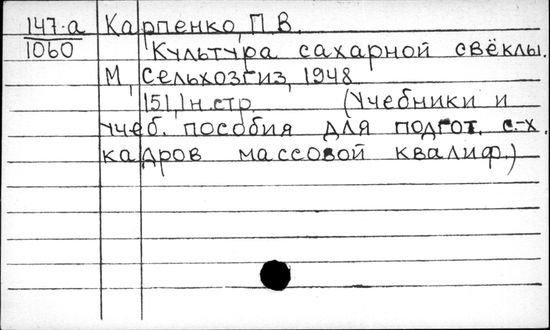 147-а Карпенко, П.В.
1060 Культура сахарной свёклы.
М, Сельхозгиз, 1948
151,1н.стр. (Учебники и
учеб. пособия для подгот. с.-х.
кадров массовой квалиф.)